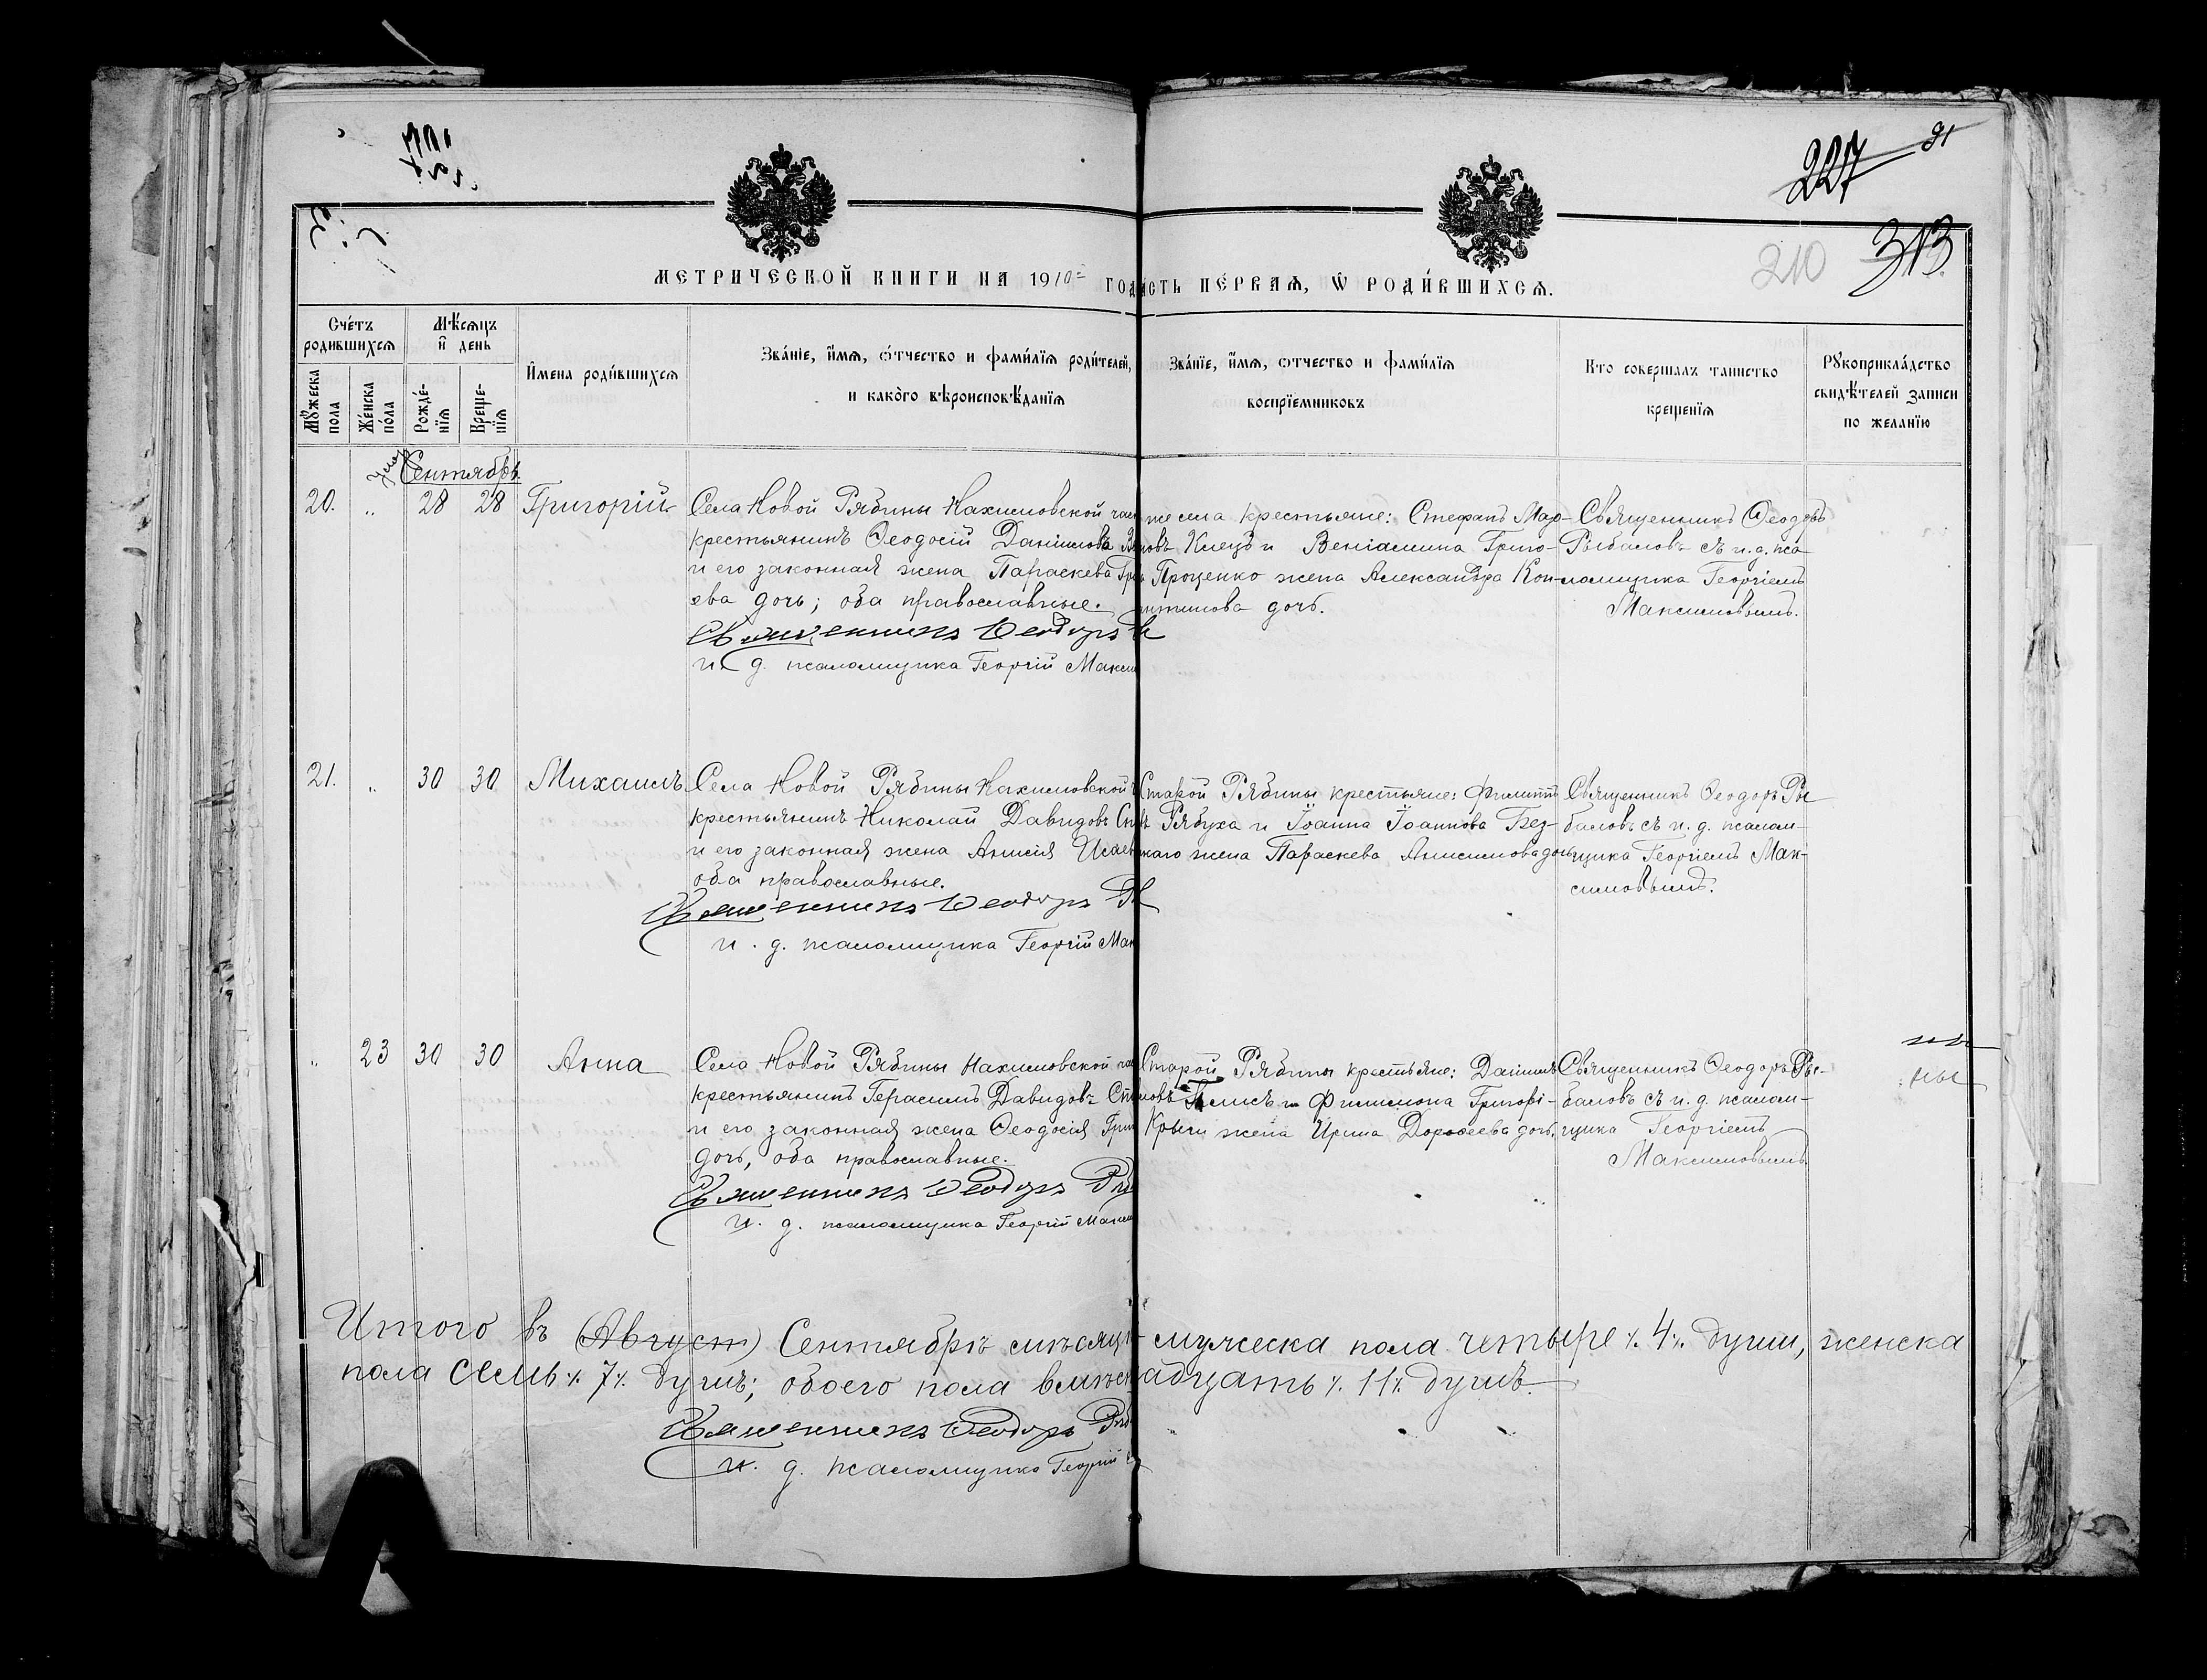 91
227
210
313
МЕТРИЧЕСКОЙ КНИГИ НА 1910 ГОД
СТЬ ПЕ́РВАѦ, Ѡ РОДИ́ВШИХСѦ.
Сче́тъ родившихсѧ
Мѣ́сѧцъ и день
Мꙋ́жеска пола
Же́нска по́ла
Рожде́нїѧ
Креще́нїѧ
И́мена роди́вшихсѧ
Зва́нїе, и́мѧ, о́тчество и фами́лїѧ роди́телей,
и како́го вѣроисповѣ́данїѧ
Зва́нїе, и́мѧ, отчество и фами́лїѧ
воспрїемниковъ
Кто совершалъ таинство
крещенїѧ
Рꙋкоприкла́дство
свидѣ́телей записи
по желанїю
Сентябрь
20. „ 28 28 Григорій
Села Новой Рябины Нахимовской
крестьянинъ Ѳеодосій Даніиловъ
и его законная жена Параскева
ева дочь; оба православные.
Священникъ Ѳеодоръ
и. д. псаломщика Георгій
же села крестьяне: Стефанъ Мар-
Клецъ и Веніамина Григо-
Проценко жена Александра Кон-
дочь.
Священникъ Ѳеодоръ
Рыбаловъ съ и. д. пса-
ломщика Георгіемъ
Максимовымъ.
21. „ 30 30 Михаилъ
Села Новой Рябины Нахимовской
крестьянинъ Николай Давидовъ
и его законная жена Анисія
оба православные.
Священникъ Ѳеодоръ
и. д. псаломщика Георгій
Старой Рябины крестьяне: Филиппъ
Рябуха и Іоанна Іоаннова Без-
жена Параскева Анисимова дочь.
Священникъ Ѳеодоръ Ры-
баловъ съ и. д. псалом-
щика Георгіемъ Мак-
симовымъ.
„ 23 30 30 Анна
Села Новой Рябины Нахимовской
крестьянинъ Герасимъ Давидовъ
и его законная жена Ѳеодосія
дочь, оба православные.
Священникъ Ѳеодоръ
и. д. псаломщика Георгій
Старой Рябины крестьяне: Даніилъ
и Филимона Григорі-
жена Ирина Дороѳеева дочь.
Священникъ Ѳеодоръ Ры-
баловъ съ и. д. псалом-
щика Георгіемъ
Максимовымъ
Итого въ (Август) Сентябрѣ мѣсяцѣ мужеска пола четыре ٪ 4 ٪ души, женска
пола семь ٪ 7 ٪ душъ; обоего пола 11 ٪ душъ.
Священникъ Ѳеодоръ
и. д. псаломщика Георгій